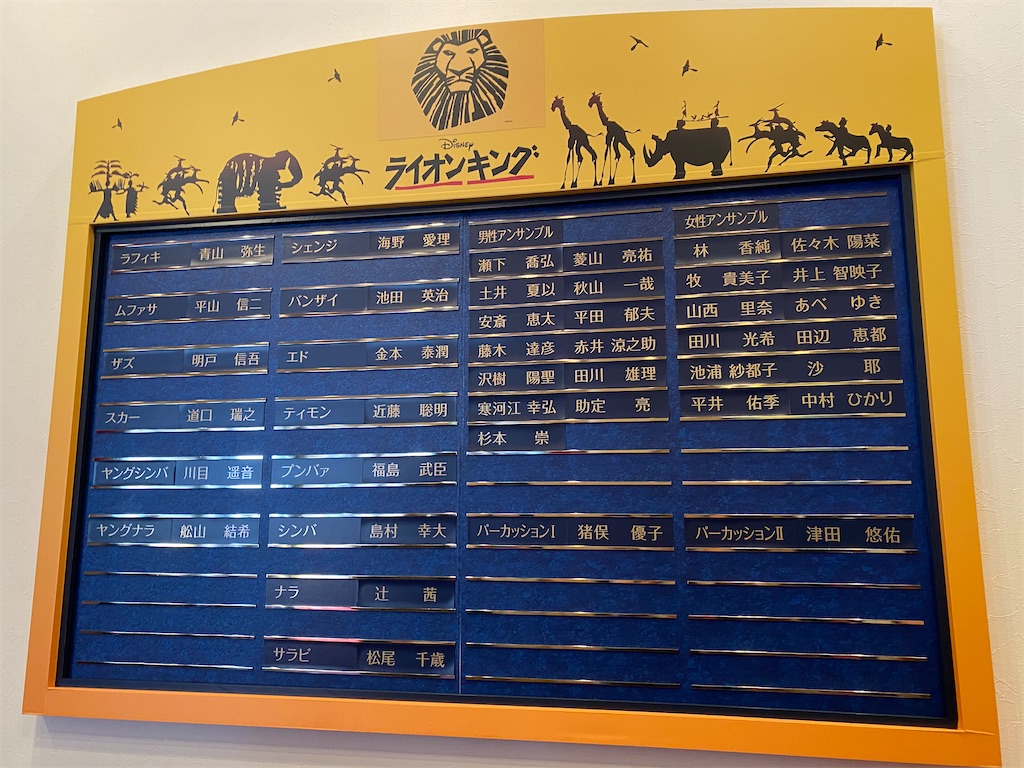 Disney
ライオンキング
ラフィキ 青山 弥生
ムファサ 平山 信二
ザズ 明戸 信吾
スカー 道口 瑞之
ヤングシンバ 川目 遥音
ヤングナラ 舩山 結希
シェンジ 海野 愛理
バンザイ 池田 英治
エド 金本 泰潤
ティモン 近藤 聡明
プンバァ 福島 武臣
シンバ 島村 幸大
ナラ 辻 茜
サラビ 松尾 千歳
男性アンサンブル
瀬下 喬弘 菱山 亮祐
土井 夏以 秋山 一哉
安斎 恵太 平田 郁夫
藤木 達彦 赤井 涼之助
沢樹 陽聖 田川 雄理
寒河江 幸弘 助定 亮
杉本 崇
パーカッションI 猪俣 優子
女性アンサンブル
林 香純 佐々木 陽菜
牧 貴美子 井上 智映子
山西 里奈 あべ ゆき
田川 光希 田辺 恵都
池浦 紗都子 沙 耶
平井 佑季 中村 ひかり
パーカッションII 津田 悠佑